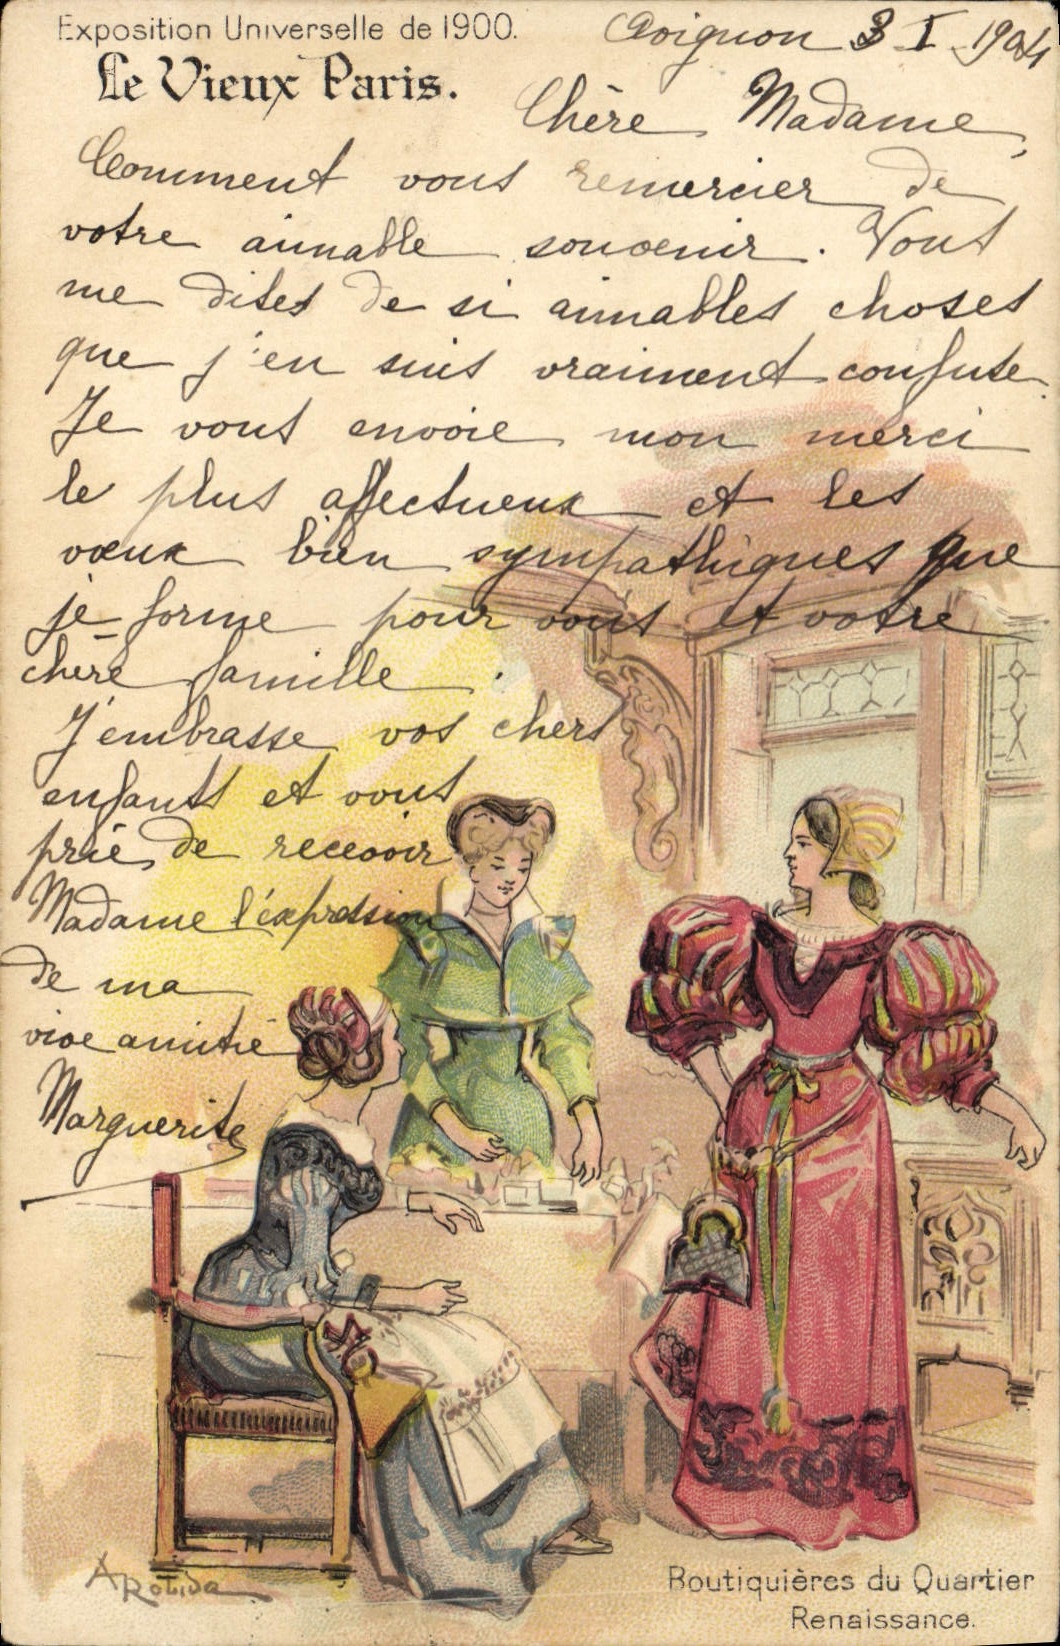 Exposition Universelle de 1900.
Le Vieux Paris.
Avignon 3 I 1904
Chère Madame,
Comment vous remercier de
votre aimable souvenir. Vous
me dites de si aimables choses
que j'en suis vraiment confuse.
Je vous envoie mon merci
le plus affectueux et les
vœux bien sympathiques que
je forme pour vous et votre
chère famille.
J'embrasse vos chers
enfants et vous
prie de recevoir
Madame l'expression
de ma
vive amitié
Marguerite
A Robida
Boutiquières du Quartier
Renaissance.